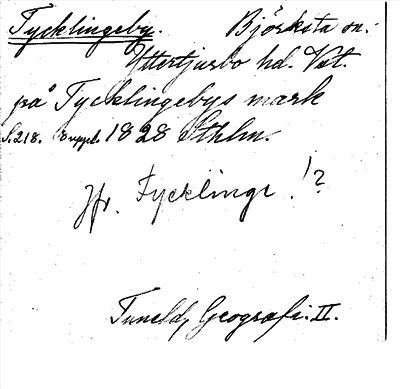 Tycklingeby. Björksta sn.:
Yttertjurbo hd. Vst.
på Tycklingebys mark
S. 218. 8 uppl. 1828 Sthlm.
Jfr. Tycklinge!?
Tuneld, Geografi. II.